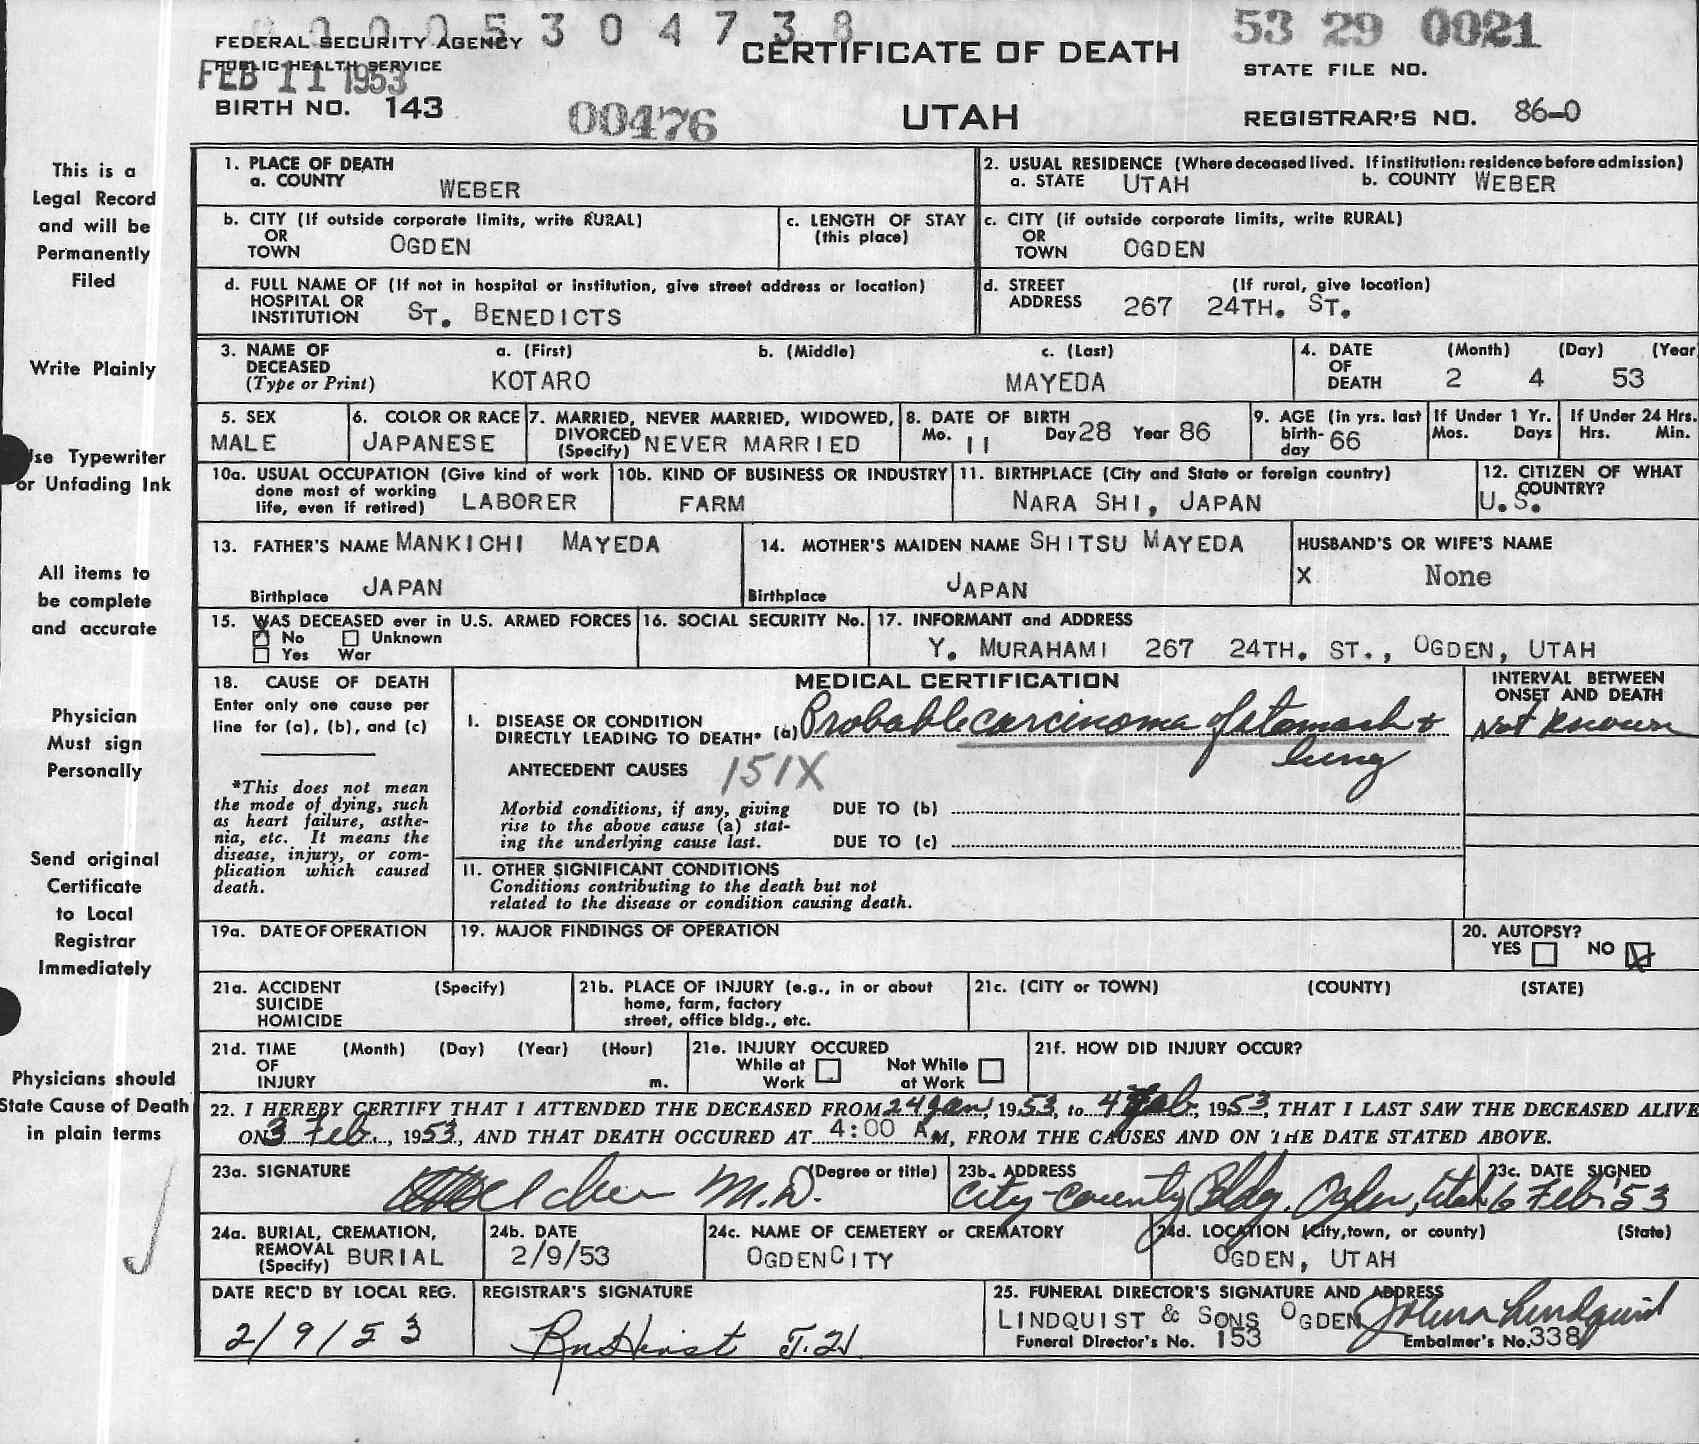 0 0 0 5 3 0 4 7 3 8
53 29 0021
FEDERAL SECURITY AGENCY
PUBLIC HEALTH SERVICE
FEB 11 1953
CERTIFICATE OF DEATH
STATE FILE NO.
BIRTH NO. 143
00476
UTAH
REGISTRAR'S NO. 86-0
This is a
Legal Record
and will be
Permanently
Filed
Write Plainly
Use Typewriter
or Unfading Ink
All items to
be complete
and accurate
Physician
Must sign
Personally
Send original
Certificate
to Local
Registrar
Immediately
Physicians should
State Cause of Death
in plain terms
1. PLACE OF DEATH
a. COUNTY WEBER
2. USUAL RESIDENCE (Where deceased lived. If institution: residence before admission)
a. STATE UTAH b. COUNTY WEBER
b. CITY (If outside corporate limits, write RURAL)
OR
TOWN OGDEN
c. LENGTH OF STAY
(this place)
c. CITY (if outside corporate limits, write RURAL)
OR
TOWN OGDEN
d. FULL NAME OF (If not in hospital or institution, give street address or location)
HOSPITAL OR
INSTITUTION ST. BENEDICTS
d. STREET (If rural, give location)
ADDRESS 267 24TH. ST.
3. NAME OF DECEASED
(Type or Print)
a. (First) b. (Middle) c. (Last)
KOTARO MAYEDA
4. DATE OF DEATH (Month) (Day) (Year
2 4 53
5. SEX
MALE
6. COLOR OR RACE
JAPANESE
7. MARRIED, NEVER MARRIED, WIDOWED,
DIVORCED
(Specify) NEVER MARRIED
8. DATE OF BIRTH
Mo. 11 Day 28 Year 86
9. AGE (in yrs. last
birth-
day 66
If Under 1 Yr.
Mos. Days
If Under 24 Hrs.
Hrs. Min.
10a. USUAL OCCUPATION (Give kind of work
done most of working
life, even if retired) LABORER
10b. KIND OF BUSINESS OR INDUSTRY
FARM
11. BIRTHPLACE (City and State or foreign country)
NARA SHI, JAPAN
12. CITIZEN OF WHAT
COUNTRY?
U.S.
13. FATHER'S NAME MANKICHI MAYEDA
Birthplace JAPAN
14. MOTHER'S MAIDEN NAME SHITSU MAYEDA
Birthplace JAPAN
HUSBAND'S OR WIFE'S NAME
X None
15. WAS DECEASED ever in U.S. ARMED FORCES
No Unknown
Yes War
16. SOCIAL SECURITY No.
17. INFORMANT and ADDRESS
Y. MURAHAMI 267 24TH. ST., OGDEN, UTAH
18. CAUSE OF DEATH
Enter only one cause per
line for (a), (b), and (c)
*This does not mean
the mode of dying, such
as heart failure, asthe-
nia, etc. It means the
disease, injury, or com-
plication which caused
death.
MEDICAL CERTIFICATION
I. DISEASE OR CONDITION
DIRECTLY LEADING TO DEATH* (a) Probable carcinoma of stomach &
lung
INTERVAL BETWEEN
ONSET AND DEATH
Not known
ANTECEDENT CAUSES 151X
Morbid conditions, if any, giving
rise to the above cause (a) stat-
ing the underlying cause last.
DUE TO (b)
DUE TO (c)
II. OTHER SIGNIFICANT CONDITIONS
Conditions contributing to the death but not
related to the disease or condition causing death.
19a. DATE OF OPERATION
19. MAJOR FINDINGS OF OPERATION
20. AUTOPSY?
YES NO X
21a. ACCIDENT (Specify)
SUICIDE
HOMICIDE
21b. PLACE OF INJURY (e.g., in or about
home, farm, factory
street, office bldg., etc.
21c. (CITY or TOWN) (COUNTY) (STATE)
21d. TIME (Month) (Day) (Year) (Hour)
OF
INJURY m.
21e. INJURY OCCURED
While at Work Not While at Work
21f. HOW DID INJURY OCCUR?
22. I HEREBY CERTIFY THAT I ATTENDED THE DECEASED FROM 24 Jan, 1953, to 4 Feb, 1953, THAT I LAST SAW THE DECEASED ALIVE
ON 3 Feb., 1953, AND THAT DEATH OCCURED AT 4:00 A M, FROM THE CAUSES AND ON THE DATE STATED ABOVE.
23a. SIGNATURE (Degree or title)
M.D.
23b. ADDRESS
City-County Bldg. Ogden, Utah
23c. DATE SIGNED
6 Feb '53
24a. BURIAL, CREMATION,
REMOVAL
(Specify) BURIAL
24b. DATE
2/9/53
24c. NAME OF CEMETERY or CREMATORY
OGDEN CITY
24d. LOCATION (City, town, or county) (State)
OGDEN, UTAH
DATE REC'D BY LOCAL REG.
2/9/53
REGISTRAR'S SIGNATURE
25. FUNERAL DIRECTOR'S SIGNATURE AND ADDRESS
LINDQUIST & SONS OGDEN
Funeral Director's No. 153 Embalmer's No. 338